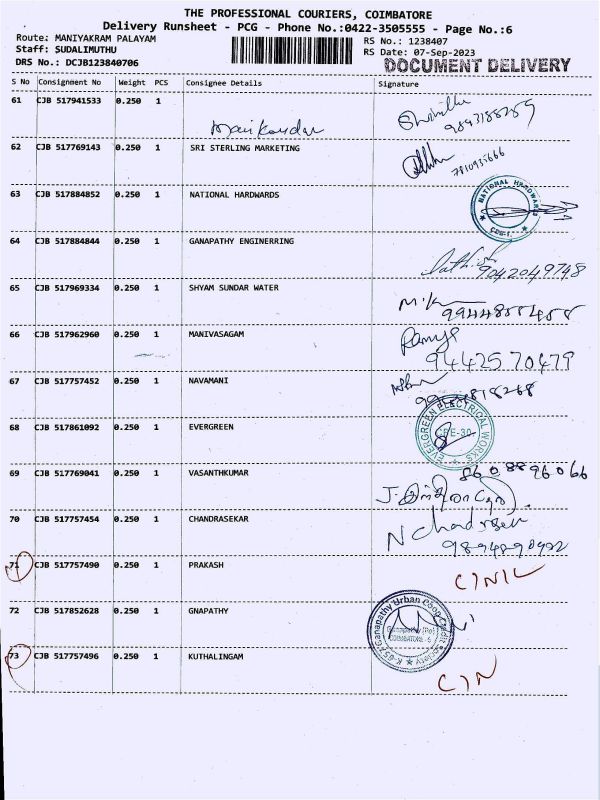 THE PROFESSIONAL COURIERS, COIMBATORE
Delivery Runsheet - PCG - Phone No.:0422-3505555 - Page No.:6
Route: MANIYAKRAM PALAYAM
RS No.: 1238407
Staff: SUDALIMUTHU
RS Date: 07-Sep-2023
DRS No.: DCJB123840706
DOCUMENT DELIVERY
S No Consignment No Weight PCS Consignee Details Signature
61 CJB 517941533 0.250 1
Manikandan 9843188259
62 CJB 517769143 0.250 1 SRI STERLING MARKETING
7810935666
63 CJB 517884852 0.250 1 NATIONAL HARDWARDS
NATIONAL HARDWARES
64 CJB 517884844 0.250 1 GANAPATHY ENGINERRING
9042049748
65 CJB 517969334 0.250 1 SHYAM SUNDAR WATER
M.K
66 CJB 517962960 0.250 1 MANIVASAGAM
Ramya
9442570479
67 CJB 517757452 0.250 1 NAVAMANI
68 CJB 517861092 0.250 1 EVERGREEN
EVERGREEN ELECTRICAL WORKS
CBE-30
69 CJB 517769041 0.250 1 VASANTHKUMAR
8608896066
70 CJB 517757454 0.250 1 CHANDRASEKAR
9894890492
71 CJB 517757490 0.250 1 PRAKASH
72 CJB 517852628 0.250 1 GNAPATHY
K-057 Ganapathy Urban Coop Credit Society
Ganapathy (Po)
COIMBATORE - 6
73 CJB 517757496 0.250 1 KUTHALINGAM